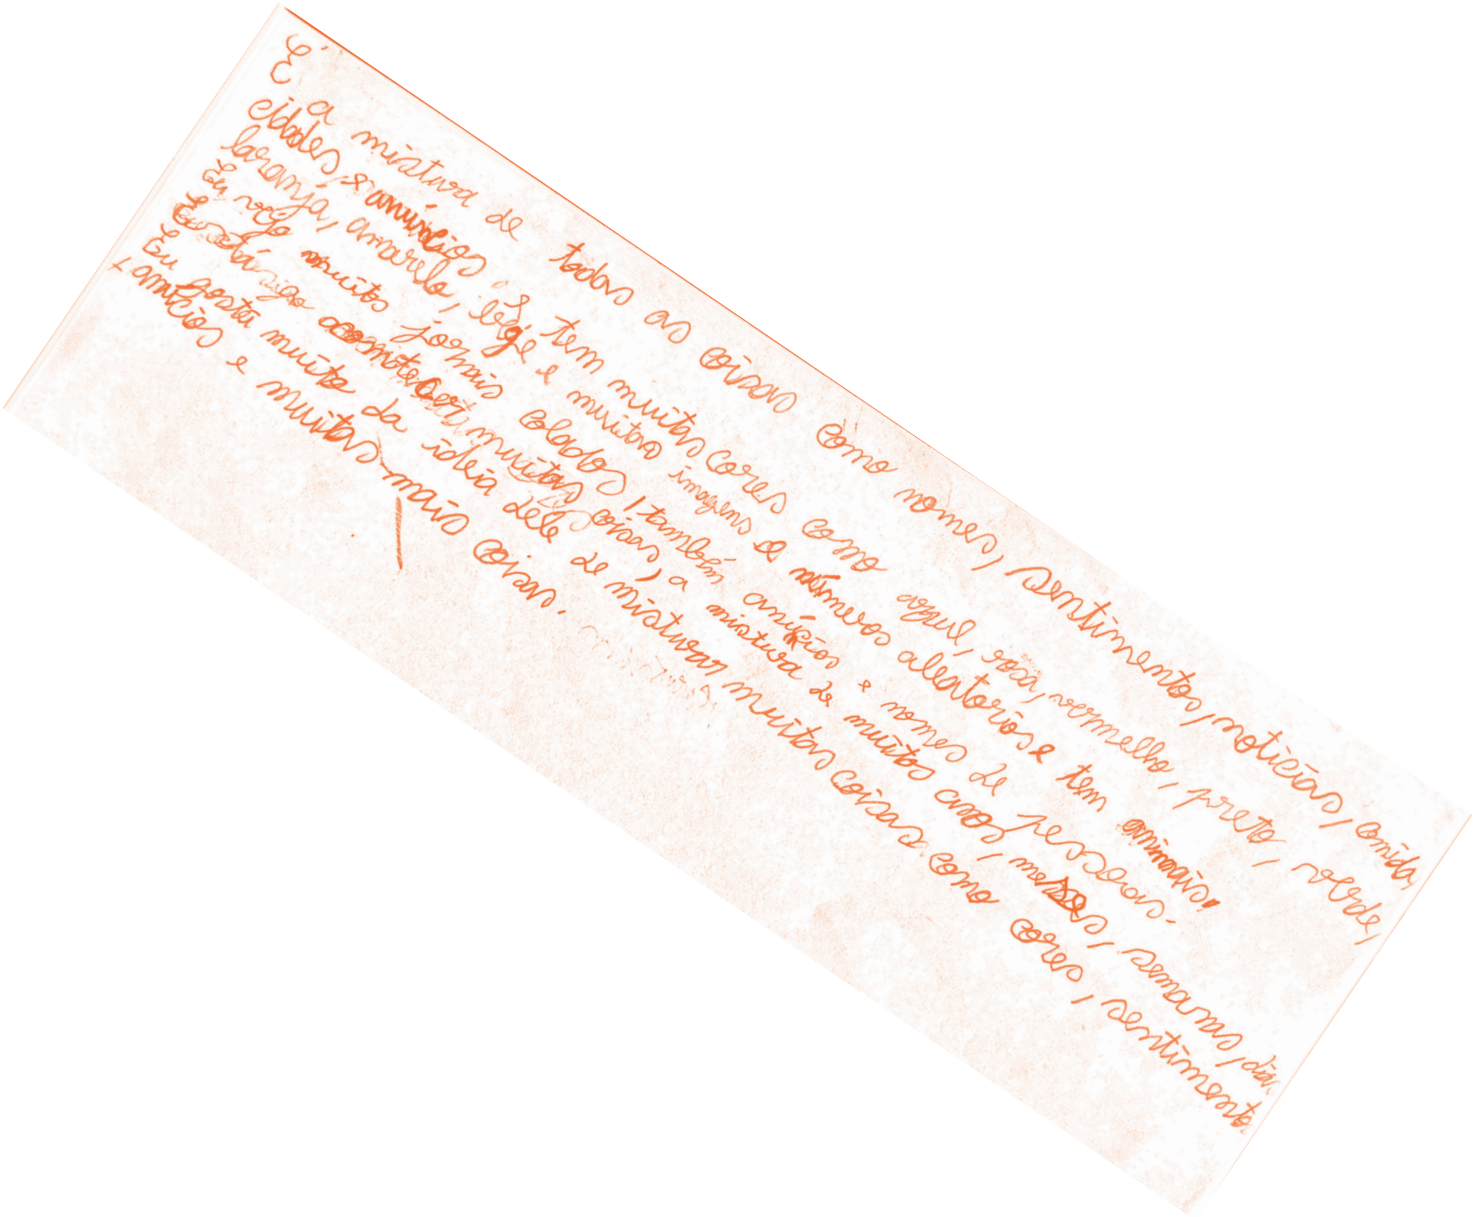 É a mistura de todas as coisas como nomes, sentimentos, noticias, comida,
cidades, e anúncios. E tem muitas cores como azul, rosa, vermelho, preto, verde,
laranja, amarelo, bege e muitas imagens e números aleatorios e tem animais.
Eu vejo muitos jornais colados, também anúcios e nomes de pessoas.
acontecer muitas coisas, a mistura de muitos anos, meses, semanas, dia
Eu gostei muito da ideia dele de misturar muitas coisas como cores, sentimento
, anúcios e muitas mais coisas.